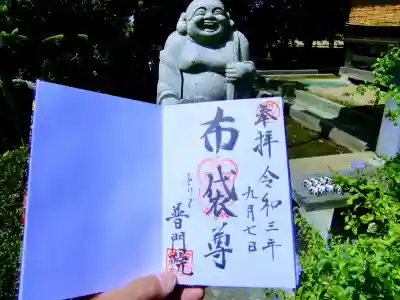 奉拝
令和三年
九月七日
布袋尊
とりで
普門院